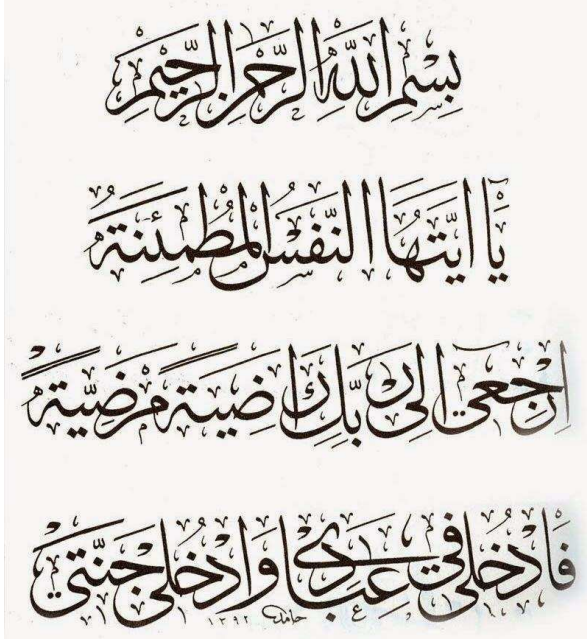 بِسْمِ اللّٰهِ الرَّحْمٰنِ الرَّحِيْمِ
يَا اَيَّتُهَا النَّفْسُ الْمُطْمَئِنَّةُ
اِرْجِعِىْ اِلٰى رَبِّكِ رَاضِيَةً مَرْضِيَّةً
فَادْخُلِى فِى عِبَادِى وَادْخُلِى جَنَّتِىْ
حامد ١٣٩٢